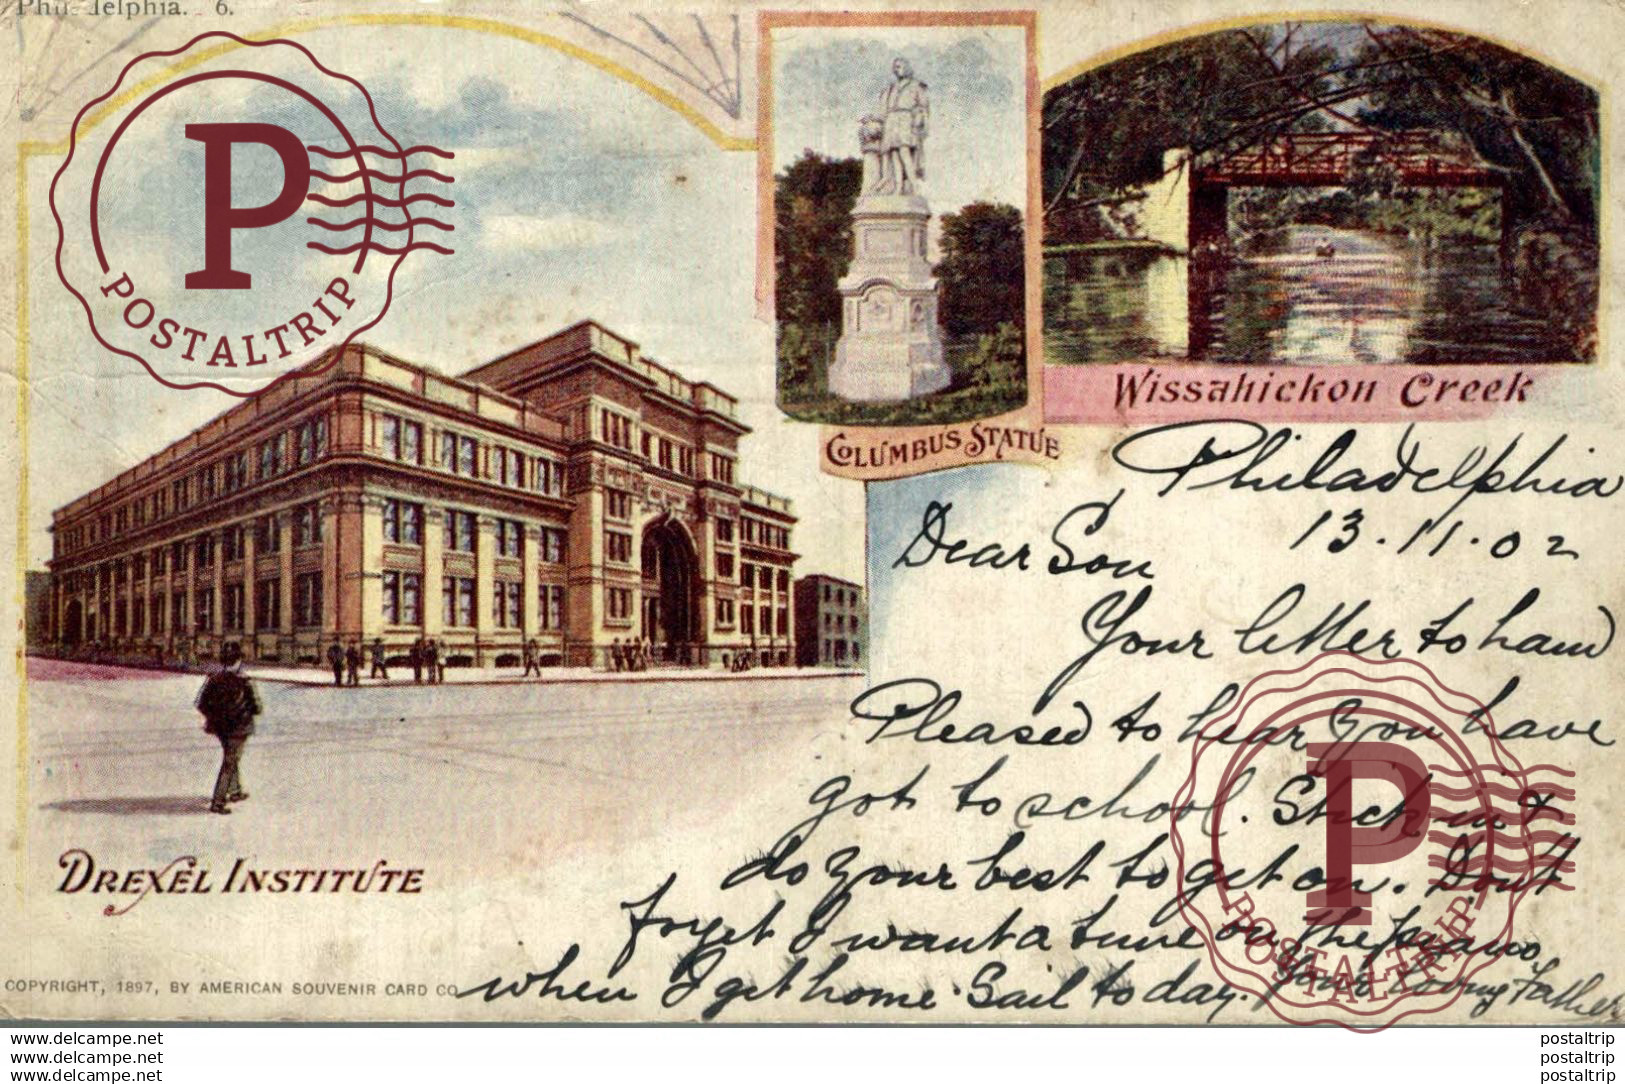 Philadelphia. 6.
P
POSTALTRIP
COLUMBUS STATUE
Wissahickon Creek
DREXEL INSTITUTE
COPYRIGHT, 1897, BY AMERICAN SOUVENIR CARD CO
Philadelphia
13.11.02
Dear Son
Your letter to hand
Pleased to hear you have
got to school. Stick in &
do your best to get on. Don't
forget I want a tune on the piano
when I get home. Sail to day. Your loving Father
P
POSTALTRIP
www.delcampe.net postaltrip
www.delcampe.net postaltrip
www.delcampe.net postaltrip